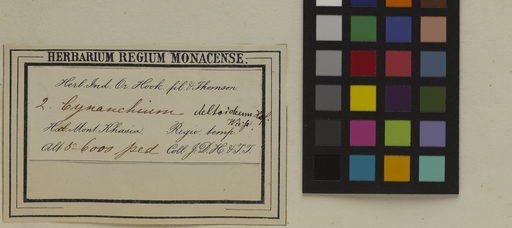 HERBARIUM REGIUM MONACENSE.
Herb. Ind. Or. Hook. fil. & Thomson
2. Cynanchium deltoideum Hkf.
Wight
Hab. Mont. Khasia. Regio temp.
Alt 5-6000 ped Coll. J.D.H. & T.T.